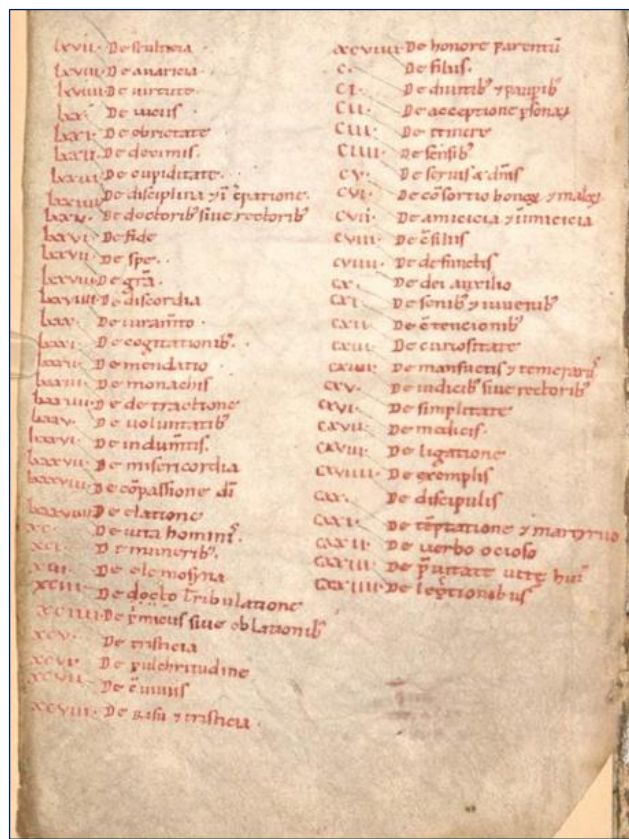 lxvii. De stulticia
lxviii. De auaricia.
lxviiii. De uirtute.
lxx. De uiciis
lxxi. De ebrietate
lxxii. De decimis.
lxxiii. De cupiditate.
lxxiiii. De disciplina ⁊ ī c̄patione.
lxxv. De doctoribꝰ siue rectoribꝰ
lxxvi. De fide
lxxvii. De spe.
lxxviii. De gr̄a.
lxxviiii. De discordia
lxxx. De iuram̄to.
lxxxi. De cogitationibꝰ.
lxxxii. De mendatio
lxxxiii. De monachis
lxxxiiii. De detractione
lxxxv. De uoluntatibꝰ
lxxxvi. De indum̄tis.
lxxxvii. De misericordia
lxxxviii. De cōpassione
lxxxviiii. De elatione
xc. De uita hominis.
xci. De muneribꝰ.
xcii. De elemosyna
xciii. De tribulatione
xciiii. De siue oblationibꝰ
xcv. De tristicia
xcvi. De pulchritudine
xcvii. De c̄uiuiis
xcviii. De risu ⁊ tristicia.
xcviiii. De honore parentū
c. De filiis.
ci. De diuitibꝰ ⁊ paupibꝰ
cii. De acceptione psonaꝝ
ciii. De itinere
ciiii. De sensibꝰ
cv. De seruis ⁊ dn̄is
cvi. De cōsortio bonoꝝ ⁊ maloꝝ
cvii. De amicicia ⁊ inimicicia
cviii. De c̄siliis
cviiii. De defunctis
cx. De dei auxilio
cxi. De senibꝰ ⁊ iuuenibꝰ
cxii. De c̄tencionibꝰ
cxiii. De curiositate
cxiiii. De mansuetis ⁊ temerariis
cxv. De iudicibꝰ siue rectoribꝰ
cxvi. De simplitate
cxvii. De medicis.
cxviii. De ligatione
cxviiii. De exemplis
cxx. De discipulis
cxxi. De tēptatione ⁊ martyrio
cxxii. De uerbo ocioso
cxxiii. De p̄uitate uitę huiꝰ
cxxiiii. De lec̄tionibus